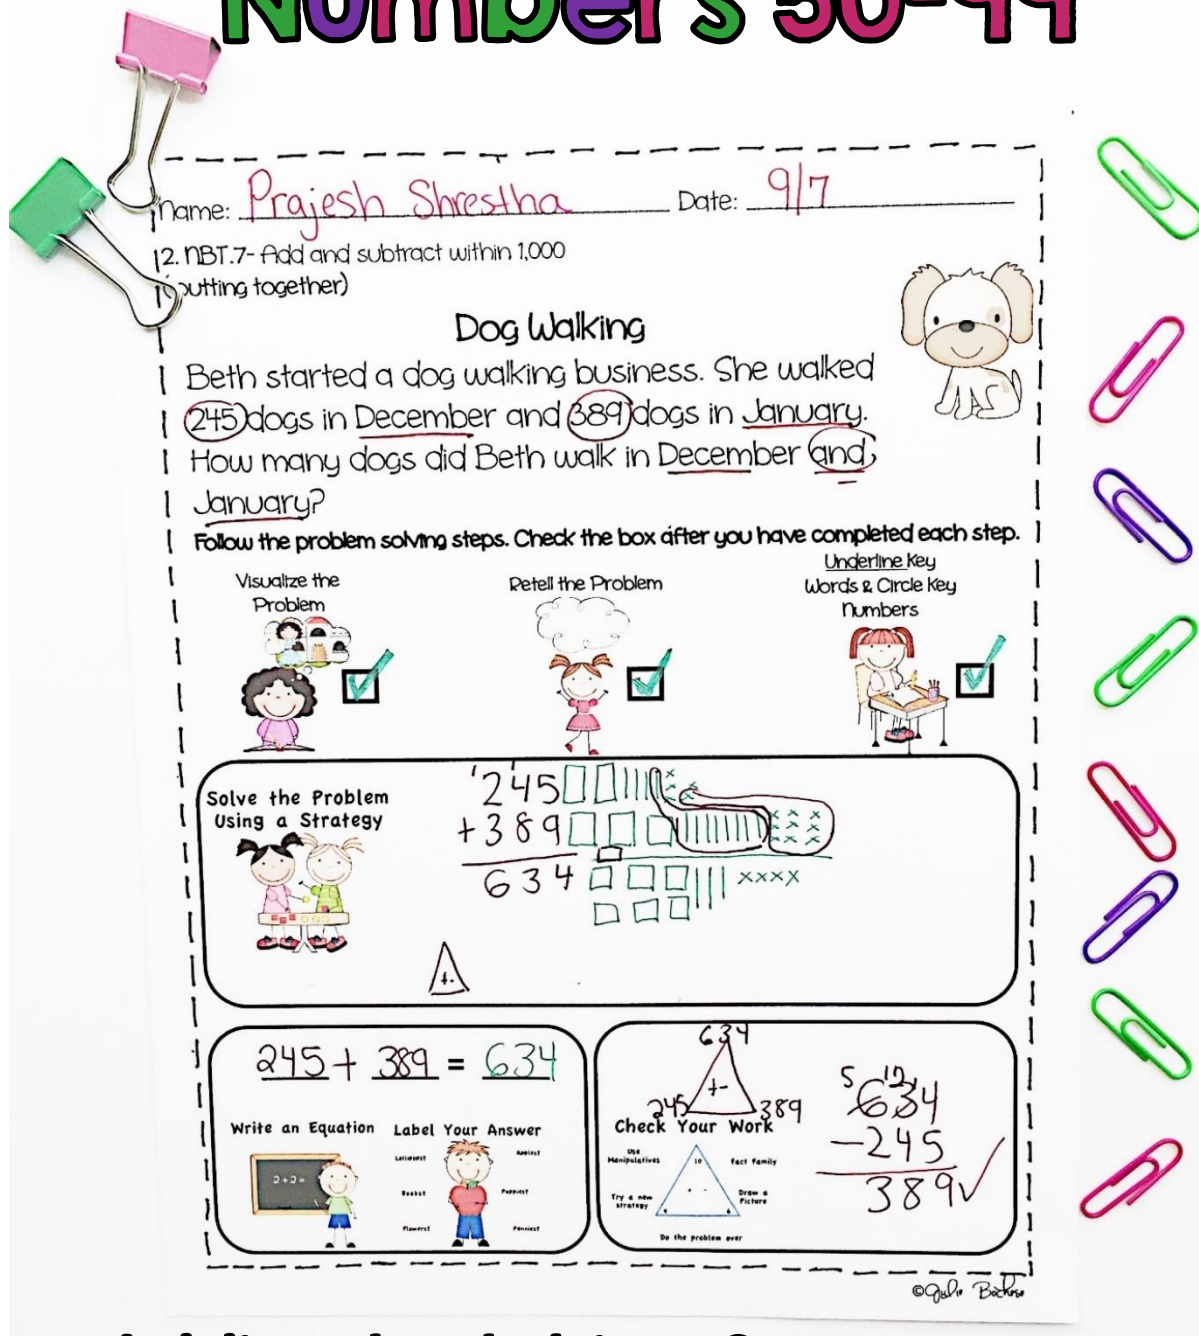 Numbers 50-99
Name: Prajesh Shrestha Date: 9/7
2.NBT.7- Add and subtract within 1,000
(putting together)
Dog Walking
Beth started a dog walking business. She walked
245 dogs in December and 389 dogs in January.
How many dogs did Beth walk in December and
January?
Follow the problem solving steps. Check the box after you have completed each step.
Visualize the
Problem
Retell the Problem
Underline Key
Words & Circle Key
Numbers
Solve the Problem
Using a Strategy
1 1
245
+389
634
xxxx
+-
245 + 389 = 634
Write an Equation
2+2=
Label Your Answer
Lollipops?
Apples?
Books?
Puppies?
Flowers?
Pennies?
634
+-
245 389
Check Your Work
Use
Manipulatives
Fact Family
Try a new
strategy
Draw a
Picture
Do the problem over
10
5 12 1
634
-245
389